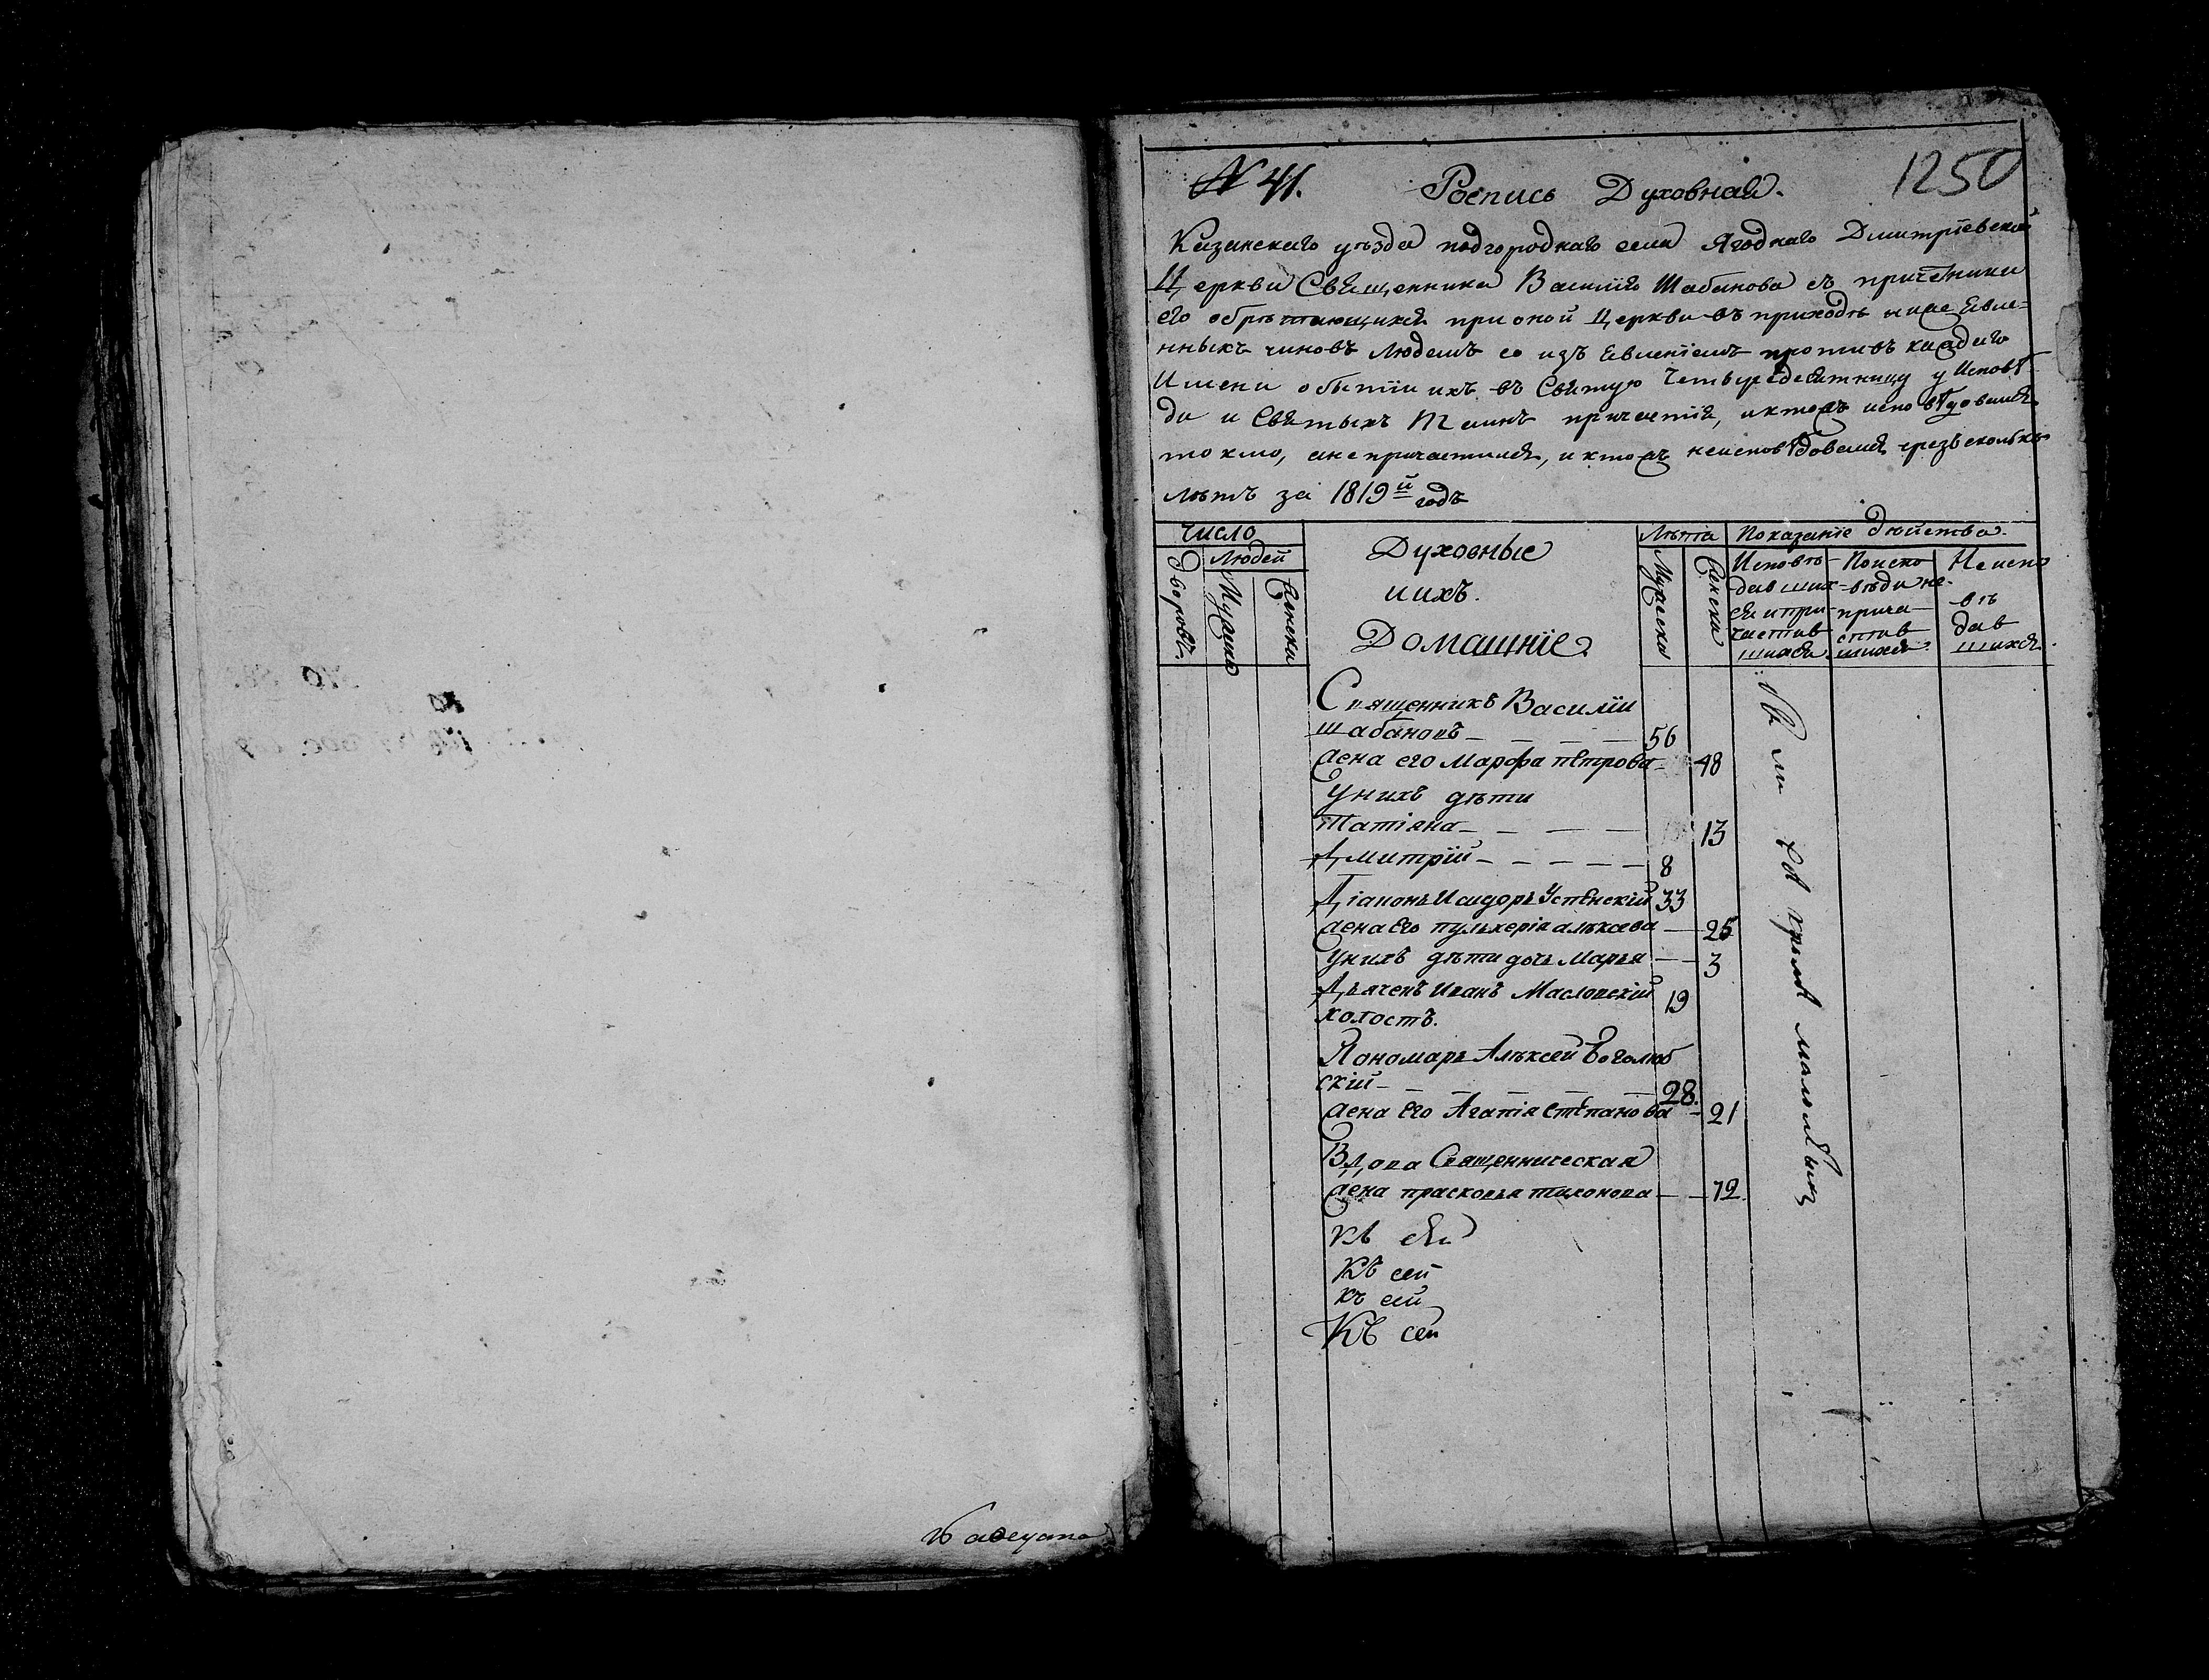 № 41.
Роспись Духовная.
1250
Казанскаго уѣзда подгороднаго села Ягоднаго Дмитрїевской
Церкви Священника Василїя Шабанова съ причетники
его обрѣтающихся при оной Церкви въ приходѣ нижеявле-
нныхъ чиновъ людемъ со изъявленїемъ противъ каждаго
Имени о бытїи ихъ въ Святую Четыредесятницу у Исповѣ-
ди и Святыхъ Таинъ причастїя, и ктожъ исповѣдовался
токмо, а не причастился, и ктожъ неисповѣдовался чрезъ сколько
лѣтъ за 1819й годъ
Число
Людей
Дворовъ.
Мужска
Женска
Духовные
и ихъ
Домашнїе.
Лѣта
Мужска
Женска
Показанїе дѣйства.
Исповѣ-
давших-
ся и при-
частив
шихся
По испо
вѣди не-
прича-
стив
шихся
Неиспо
вѣ
дав
шихся.
Священникъ Василїи
шабановъ 56
жена его Марфа петрова 48
У нихъ дѣти
Татїяна 13
Дмитрїй 8
Дїаконъ Исидоръ Успенскїй 33
жена Его пулхерїя алѣксева 25
У нихъ дѣти дочь Марья 3
Дьячекъ Иванъ Масловскїй 19
холостъ.
Пономарь Алѣксей Боголюб
скїй 28.
жена Его Агапїя Степанова 21
Вдова Священническая
жена прасковья тихонова 72.
Къ сей
Къ сей
Къ сей
Къ сей